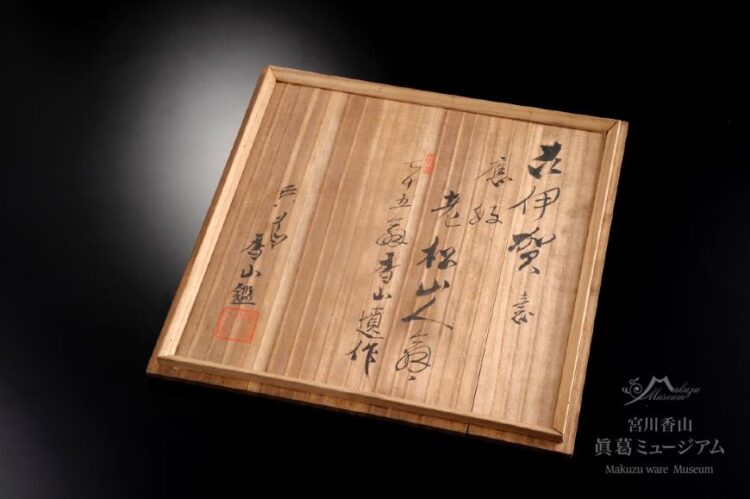 古伊賀意
應
老松山人翁
七十五翁香山作
真葛香山鑑
Makuzu
Museum
宮川香山
眞葛ミュージアム
Makuzu ware Museum